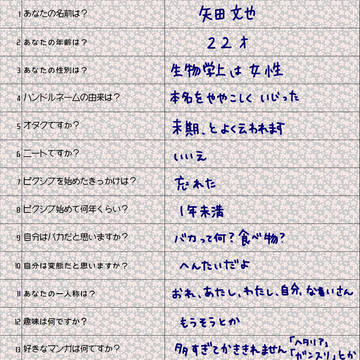 1 あなたの名前は？ 矢田文也
2 あなたの年齢は？ 22才
3 あなたの性別は？ 生物学上は女性
4 ハンドルネームの由来は？ 本名をややこしくいじった
5 オタクですか？ 末期、とよく云われます
6 ニートですか？ いいえ
7 ピクシブを始めたきっかけは？ 忘れた
8 ピクシブ始めて何年くらい？ 1年未満
9 自分はバカだと思いますか？ バカって何？食べ物？
10 自分は変態だと思いますか？ へんたいだよ
11 あなたの一人称は？ おれ、あたし、わたし、自分、
12 趣味は何ですか？ もうそうとか
13 好きなマンガは何ですか？ 多すぎとかききれません「ヘタリア」
「ガンスリ」とか